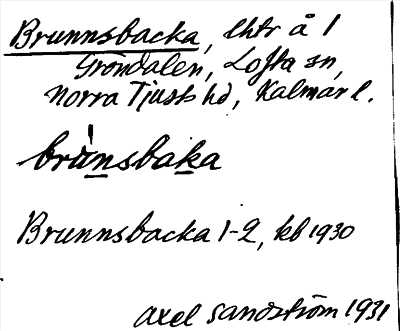 Brunnsbacka, lhtr å 1
Gröndalen, Lofta sn,
Norra Tjusts hd, Kalmar l.
brùnsbaka
Brunnsbacka 1-2, kb 1930
Axel Sandström 1931